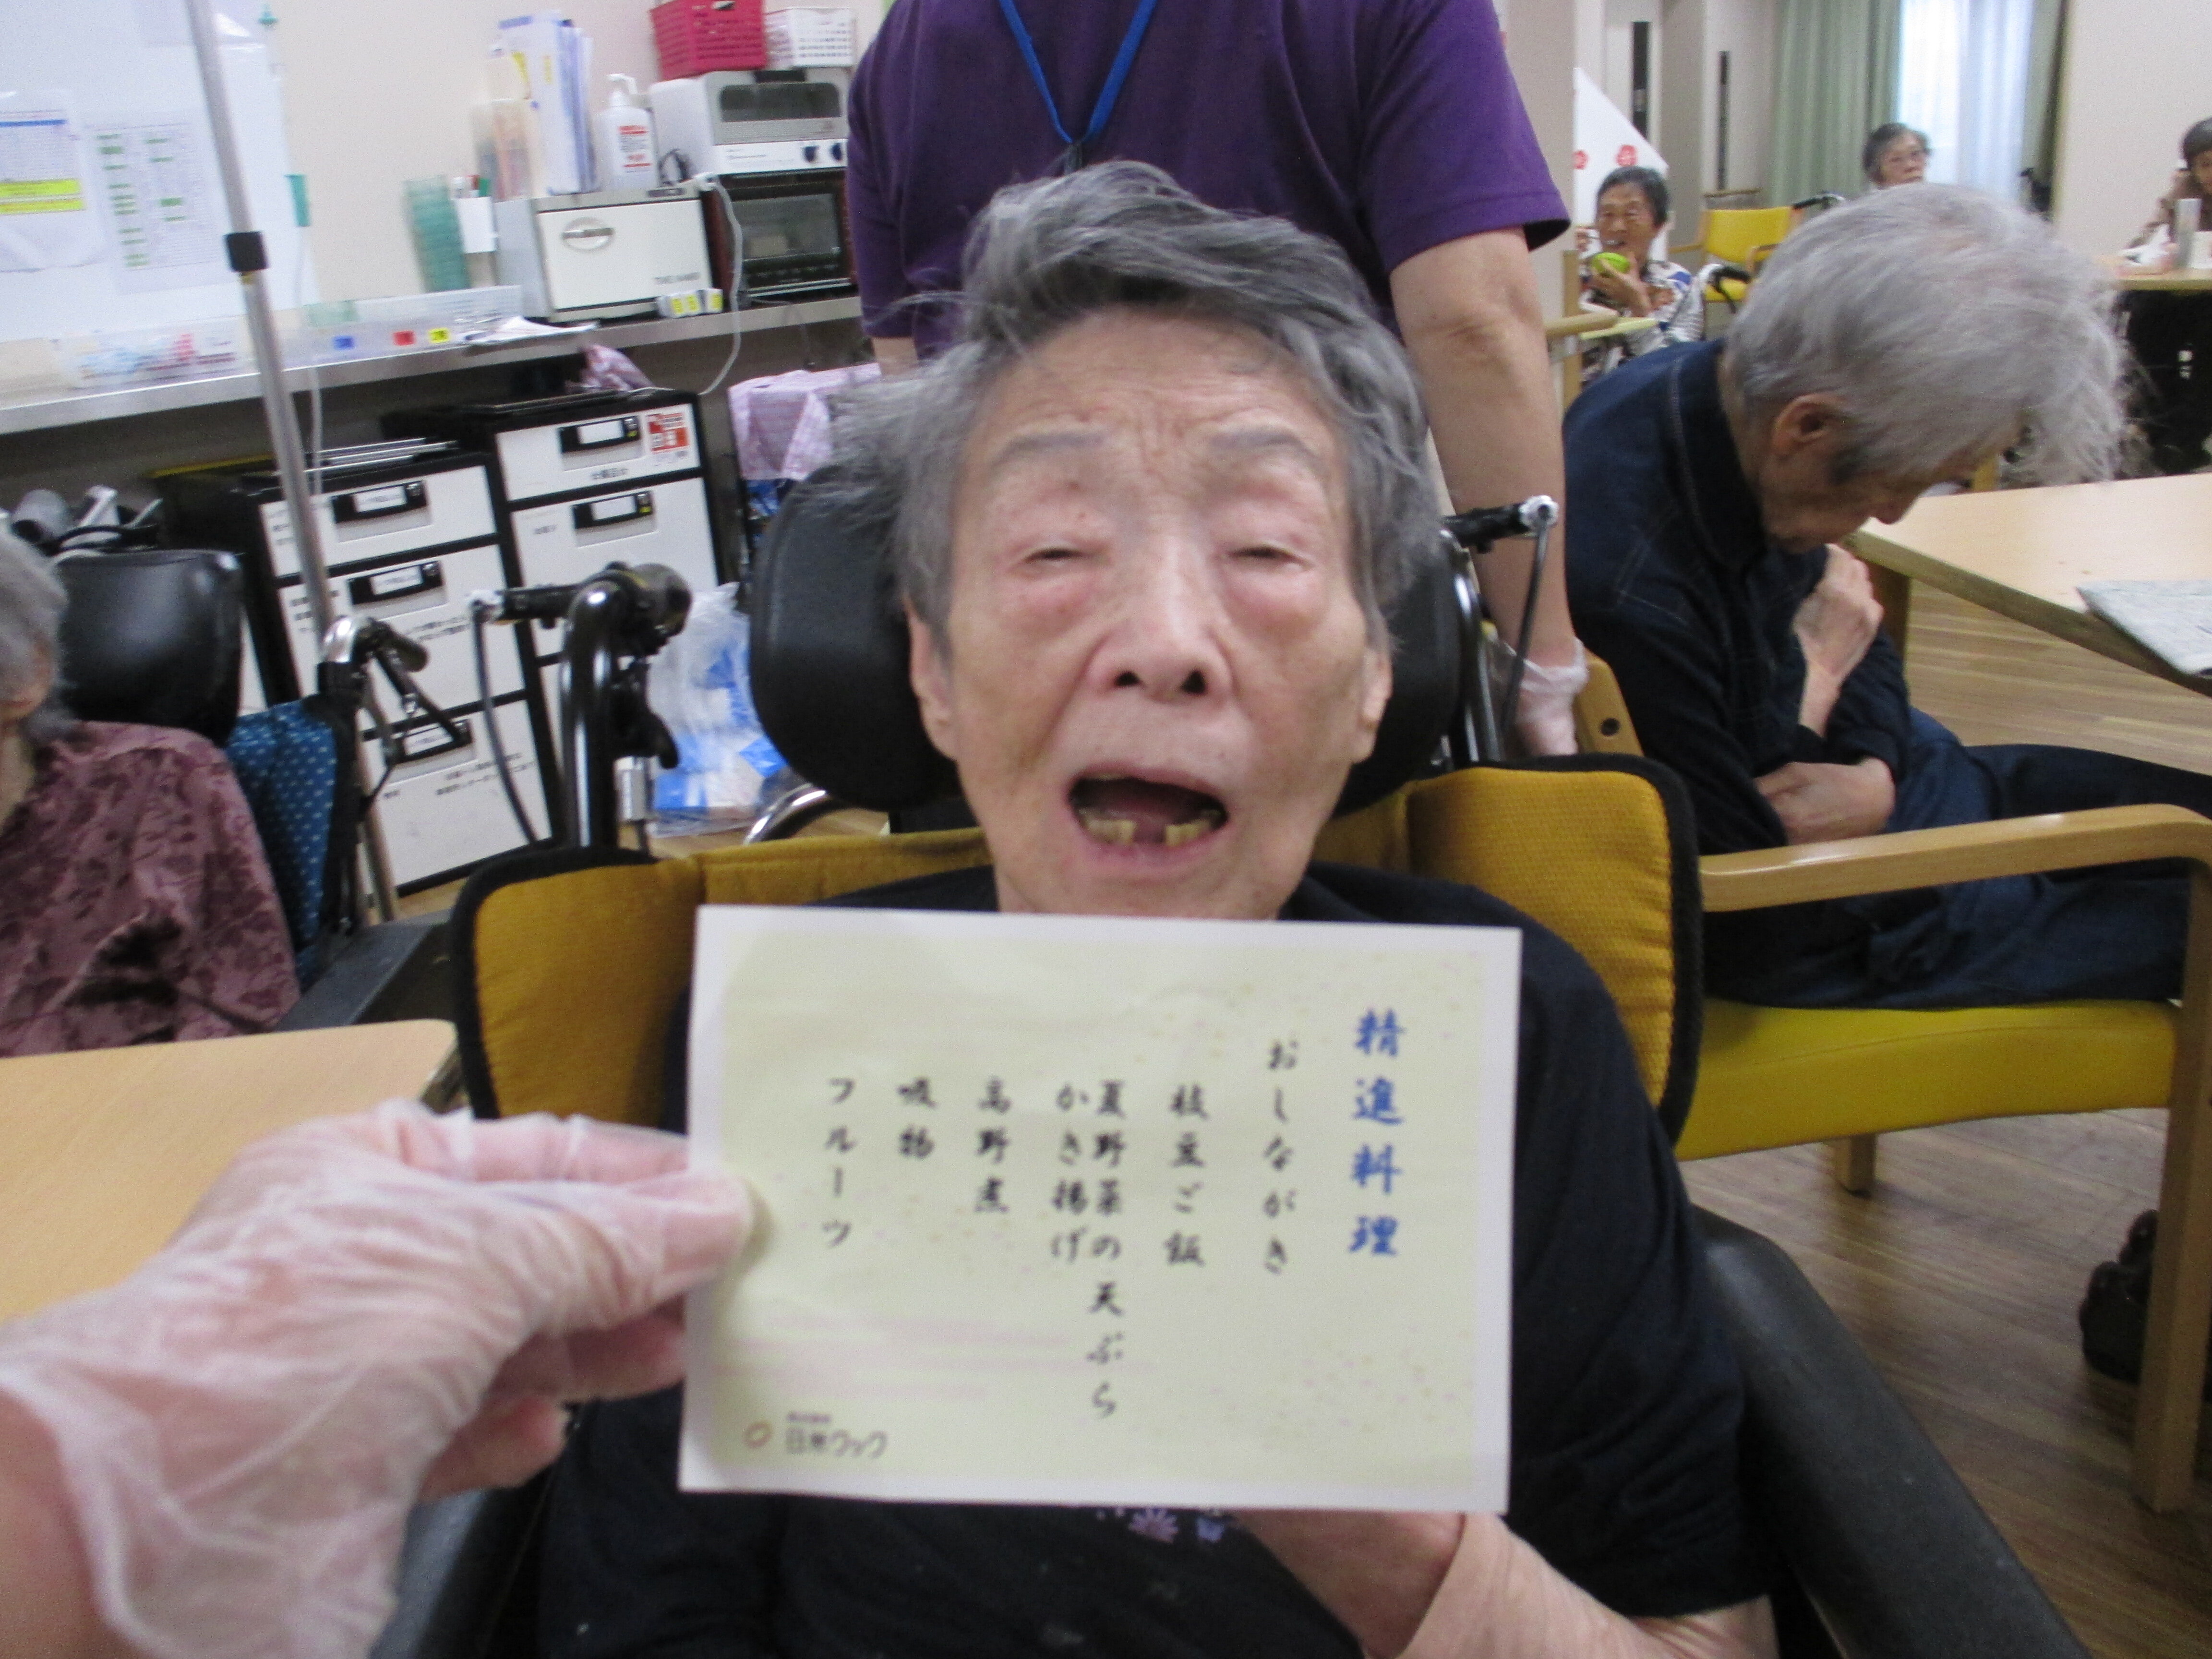 精進料理
おしながき
枝豆ご飯
夏野菜の天ぷら
かき揚げ
高野煮
吸物
フルーツ
日米クック